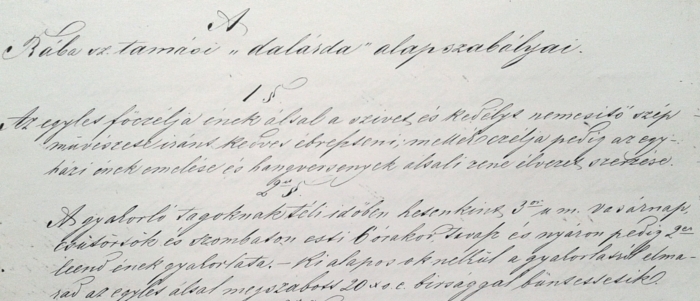 A
Rába sz. tamási „dalárda" alapszabályai.
1 §
Az egylet főczélja ének által a szivet és kedélyt nemesitő szép
művészet iránt kedvet ébreszteni; mellék czélja pedig az egy-
házi ének emelése és hangversenyek általi zene élvezet szerzése.
2ik §
A gyakorló tagoknak téli időben hetenkint 3or u. m. vasárnap
csütörtök és szombaton esti 6 órakor, tavasz és nyáron pedig 2er
leend ének gyakorlata. – Ki alapos ok nélkül a gyakorlatról elma-
rad az egylet által megszabott 20 o. é. birsággal büntettetik.